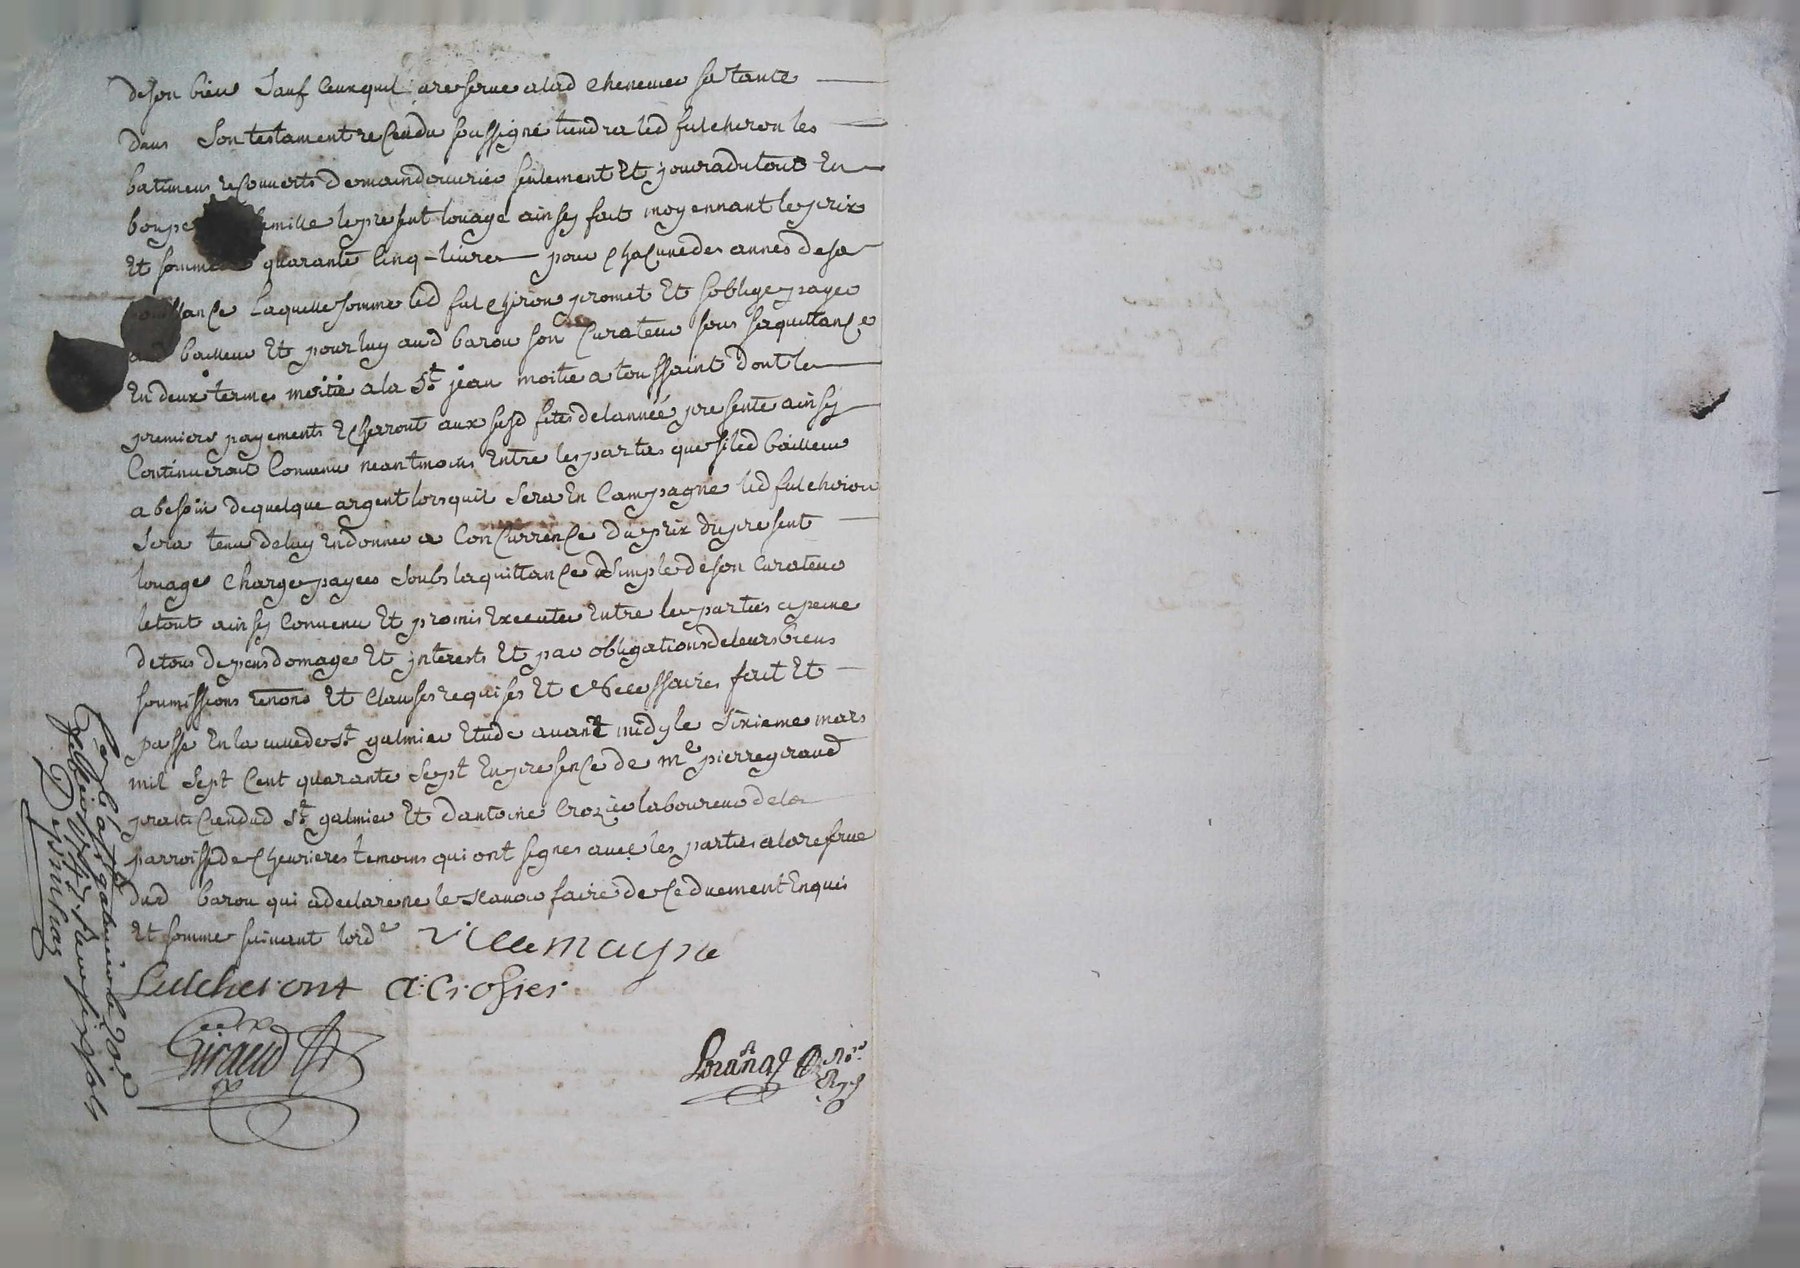 deson bien Sauf Ceux quil a reserve a lad Chenevier sa tante
dans Son testament receu du soussigné tiendra led fulcheron les
batimens recouverts de maindouvrier seulement Et jouira du tout En
bon pe famille le present louage ainsy fait moyennant le prix
Et somme quarante Cinq livres pour chacune des annes de sa
jouissance Laquelle somme led fulchiron promet Et soblige payer
aud bailleur Et pour luy aud barou son Curateur sous sa quittance
En deux termes moitié a la St jean moitie a toussaint dont les
premiers payements Echerront aux susd fetes de lannée presente ainsy
Continueront Convenu neantmoins Entre les parties que si led bailleur
a besoin de quelque argent lorsquil Sera En Campagne led fulcheron
Sera tenu de luy En donner a Concurrence du prix du present
louage Charge payees Soubs la quittance Simple de son Curateur
le tout ainsy Convenu Et promis Executer Entre les parties a peine
de tous depens domages Et jnterests Et par obligations de leurs biens
soumissions renons Et Clauses requises Et necessaires fait Et
passe En la ville de St galmier Etude avant midy le Sixieme mars
mil Sept Cent quarante Sept En presence de me pierre giraud
praticien dud St galmier Et dantoine Crozier laboureur de la
parroisse de Chevrieres temoins qui ont signes avec les parties a la reserve
dud barou qui a declaré ne le scavoir faire de Ce duement Enquis
Et somme suivant lorde
Villemagne
fulcheront a Crosier
Giraud
Nore
Rl
Conlé a St galmier le